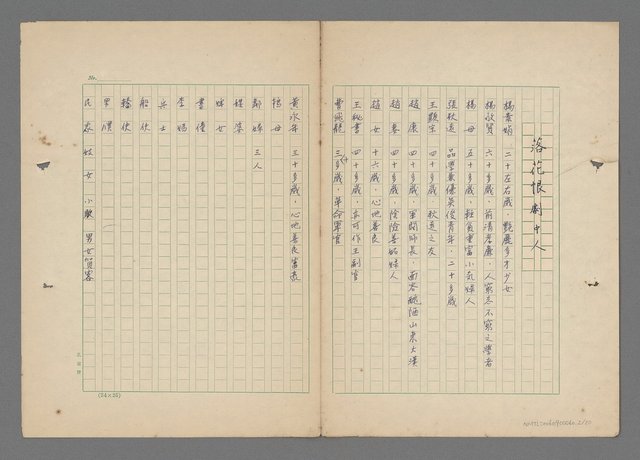 落花恨劇中人
楊素娟 二十左右歲，艷麗多才少女
楊欣賢 六十多歲，前清孝廉，人窮志不窮之學者
楊母 五十多歲，輕負重富小氣婦人
張秋遠 品學兼優英俊青年，二十多歲
王顯宗 四十多歲 秋遠之友
趙康 四十多歲，軍閥師長，面容醜陋山東大漢
趙妻 四十多歲，陰險善妬婦人
趙女 十六歲，心地善良
王秘書 四十多歲，亦可作王副官
曹飛龍 三十多歲，革命軍官
黃永年 三十多歲，心地善良軍長
楊母
鄰婦 三人
媒婆
婢女
書僮
李媽
兵士
船伕
轎伕
男僕
民眾 妓女 小歌 男女賀客
No.
(24×25)